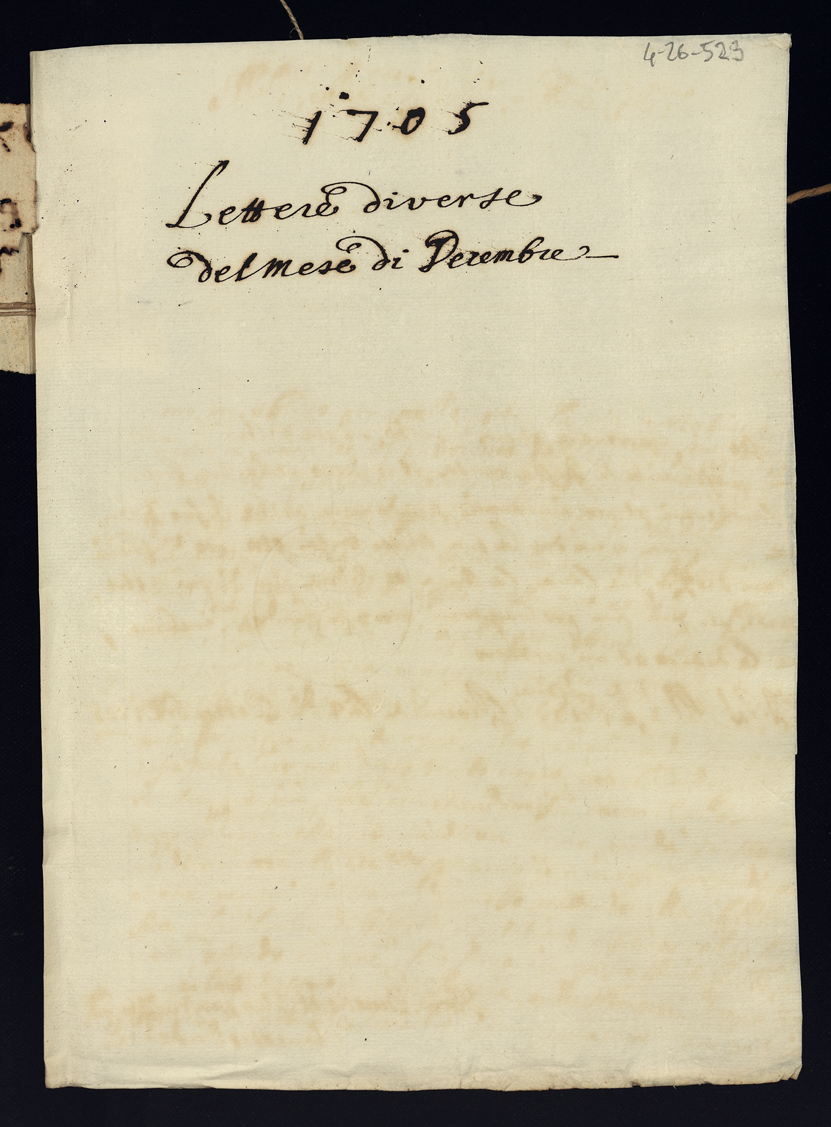 4-26-523
1705
Lettere diverse
del mese di Decembre